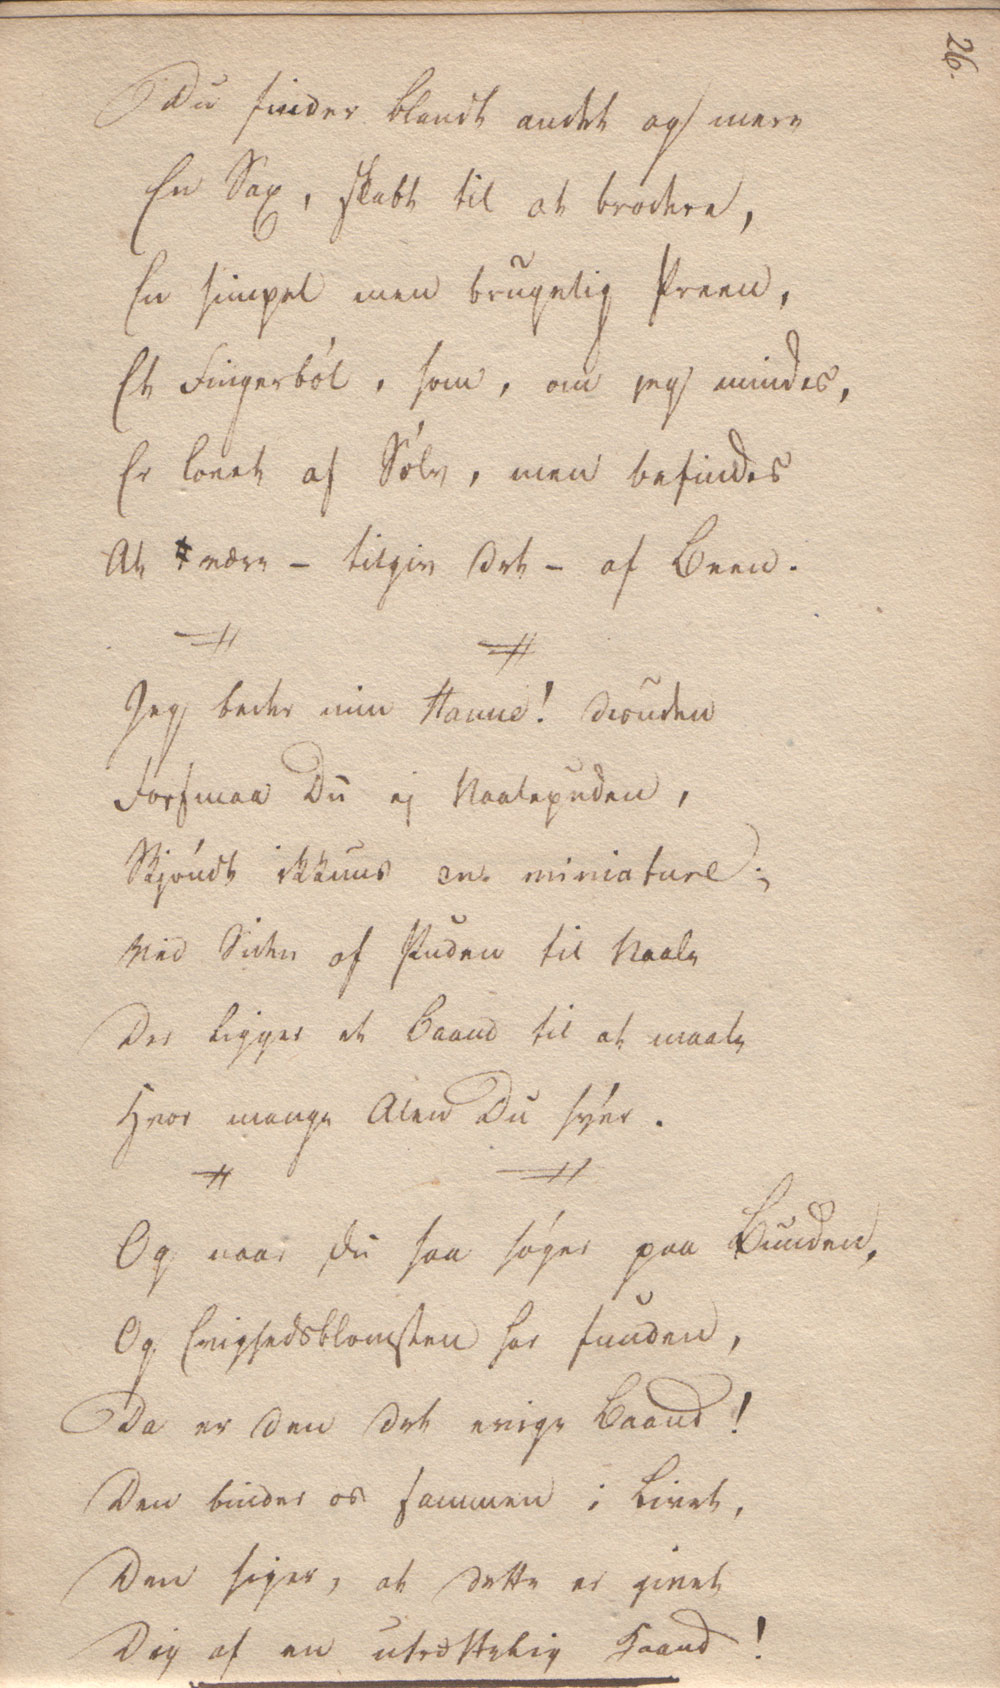 26.
Du finder blandt andet og mere
En Sax, skabt til at brodere,
En simpel men brugelig Preen,
Et Fingerból, som, om jeg mindes,
Er lovet af Sólv, men befindes
At være – tilgiv det – af Been.
Jeg beder min Hanne! desuden
Forsmaa Du ej Naalepuden,
Skjóndt ikkuns en miniature;
Ved Siden af Puden til Naale
Der ligger et Baand til at maale
Hvor mange Alen Du syer.
Og naar Du saa sóger paa Bunden,
Og Evighedsblomsten har funden,
Da er den det evige Baand!
Den binder os sammen i Livet,
Den siger, at dette er givet
Dig af en utrættelig Haand!